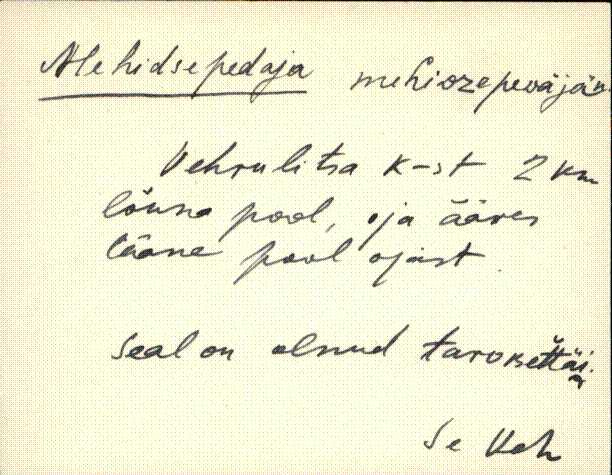 Mehidsepedaja mehiozepeväjän
Vehrulitsa k-st 2 km
lõuna pool, oja ääres
lääne pool ojast
Seal on olnud
Se Veh